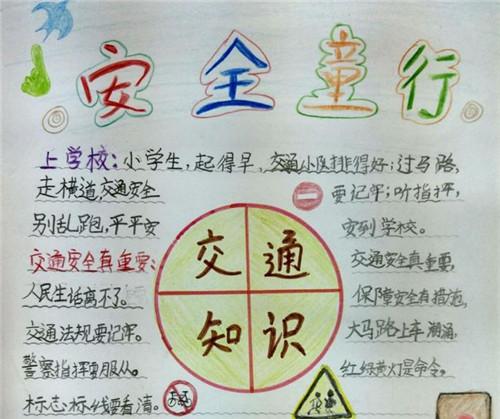 安全童行
上学校：小学生，起得早，交通小队排得好；过马路，
走横道，交通安全
要记牢；听指挥，
别乱跑，平平安
安到学校。
交通安全真重要：
交通安全真重要，
人民生活离不了。
保障安全有措施，
交通法规要记牢。
大马路上车潮涌，
警察指挥要服从。
红绿黄灯是命令，
标志标线要看清。
交通
知识